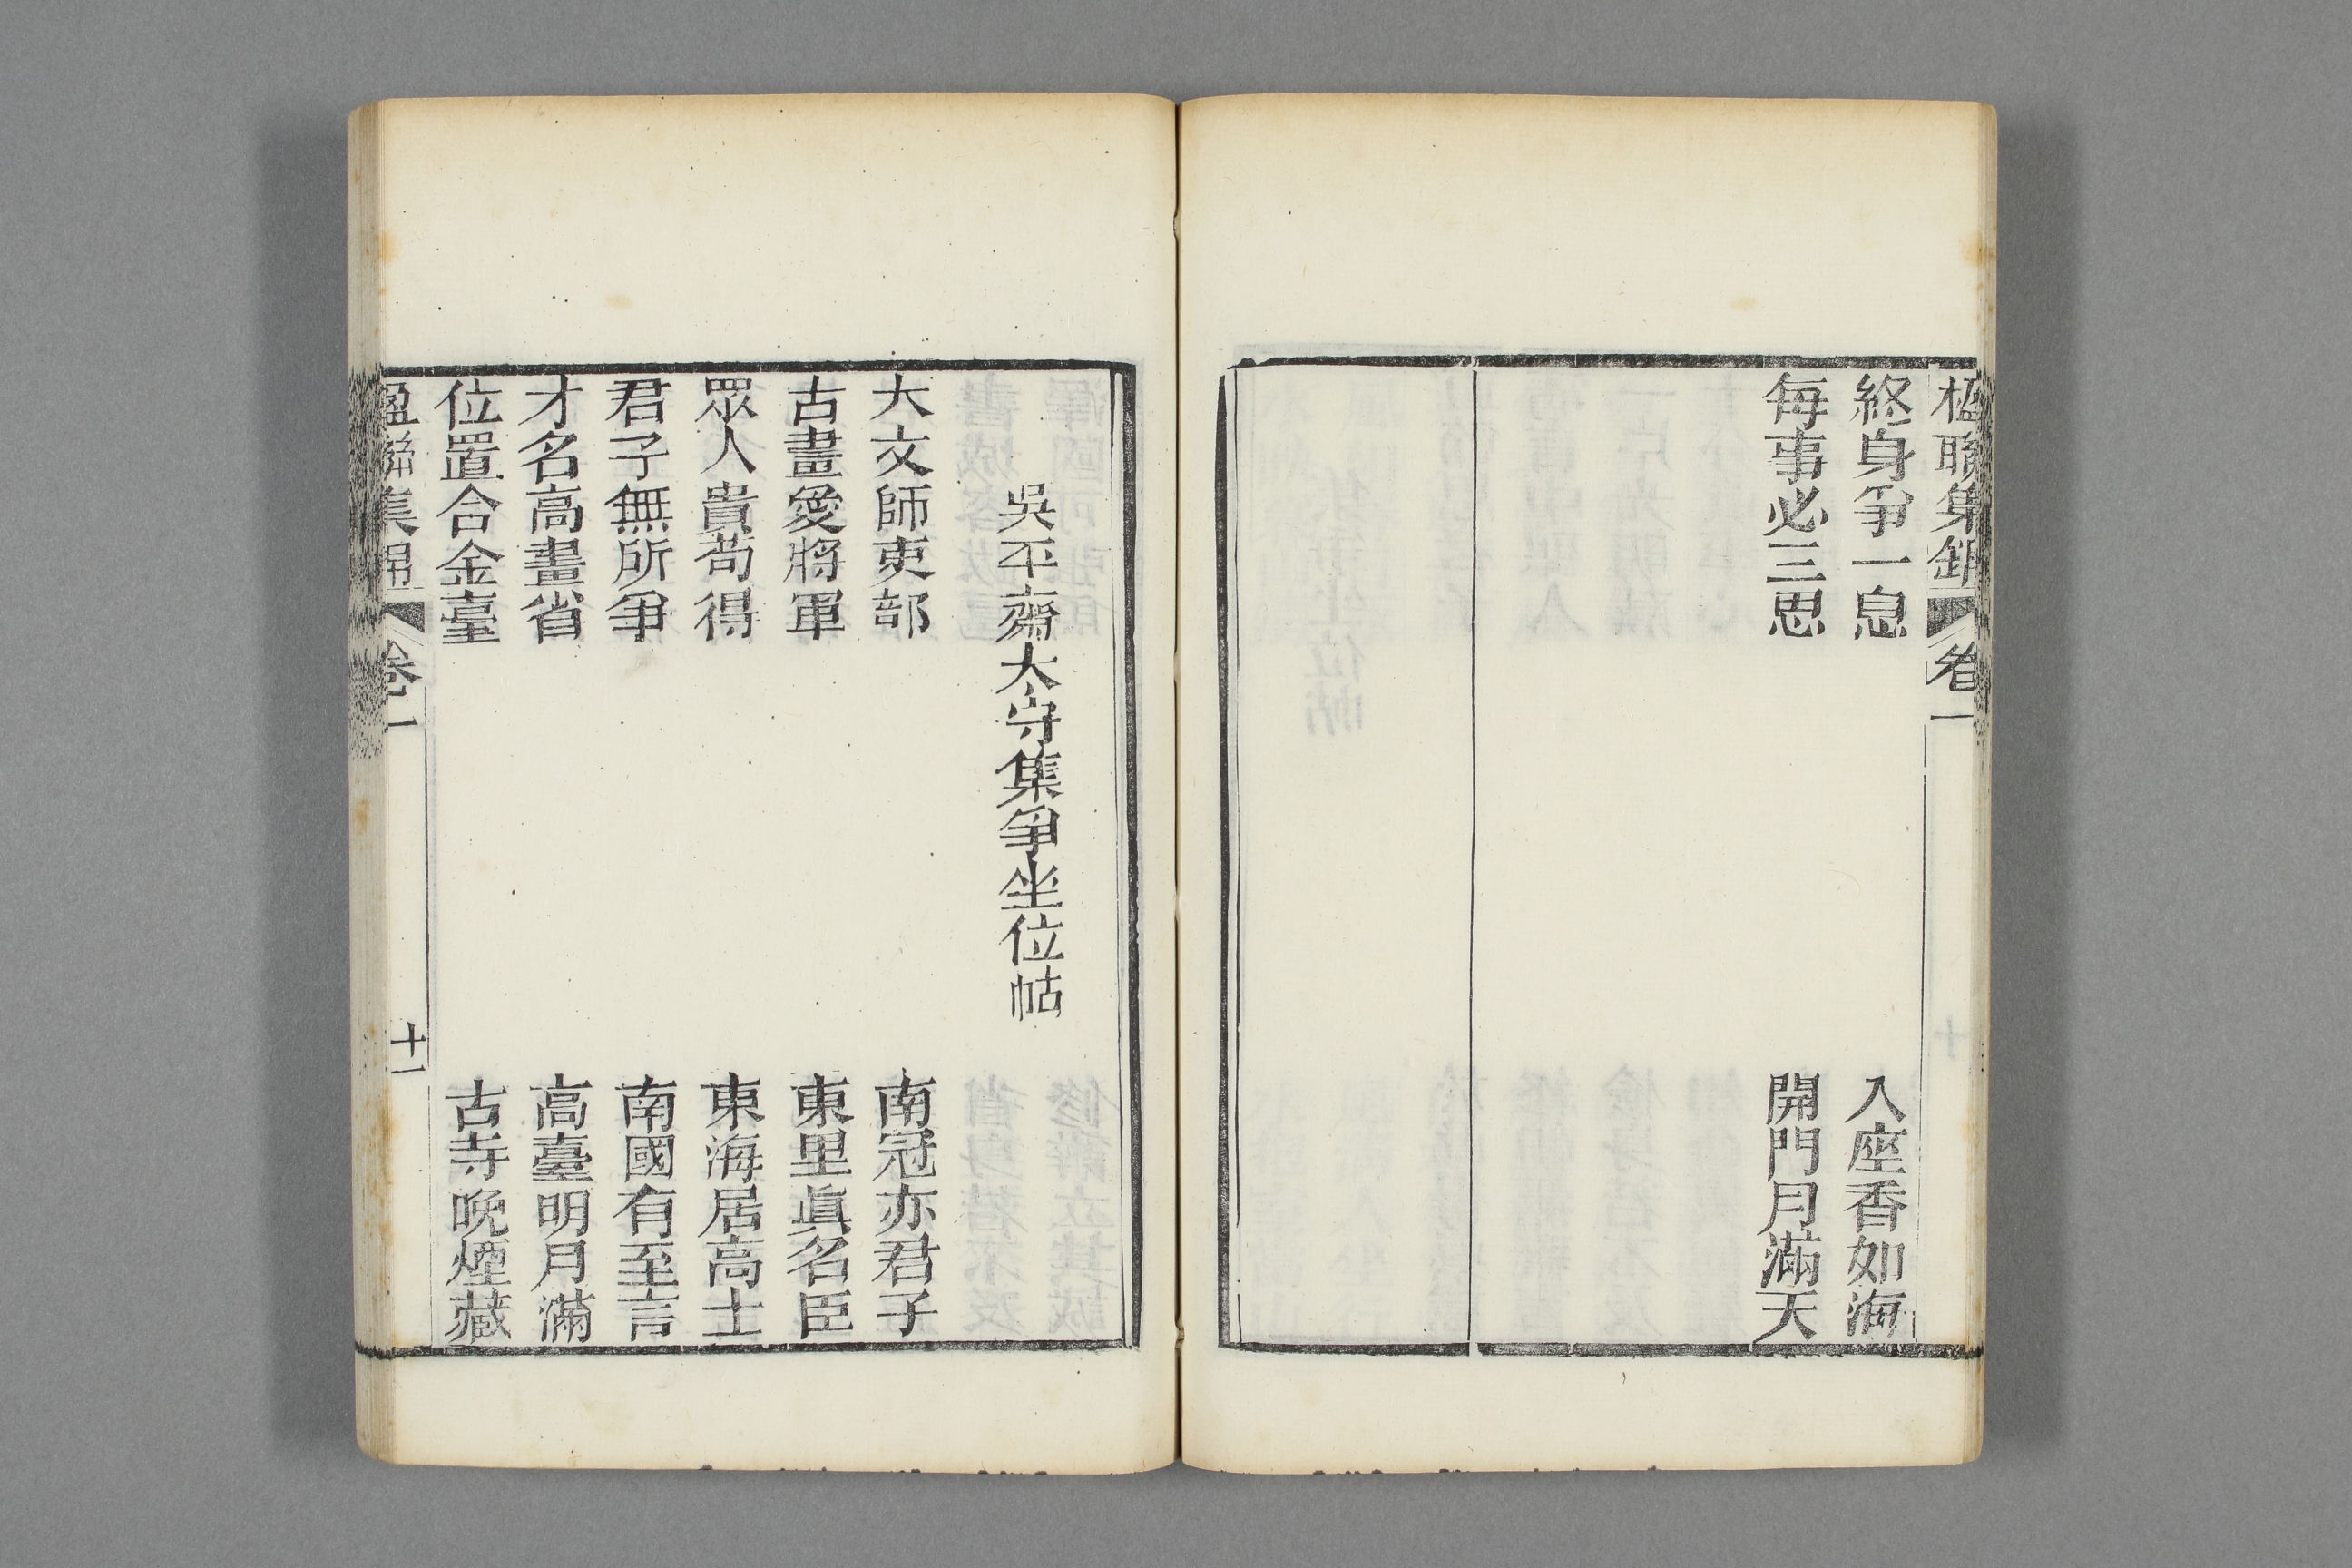 楹聯集錦 卷一
終身爭一息
入座香如海
每事必三思
開門月滿天
吳平齋太守集爭坐位帖
大文師吏部
南冠亦君子
古畫愛將軍
東里眞名臣
眾人貴苟得
東海居高士
君子無所爭
南國有至言
才名高畫省
高臺明月滿
位置合金臺
古寺晚煙藏
楹聯集錦 卷一 十一